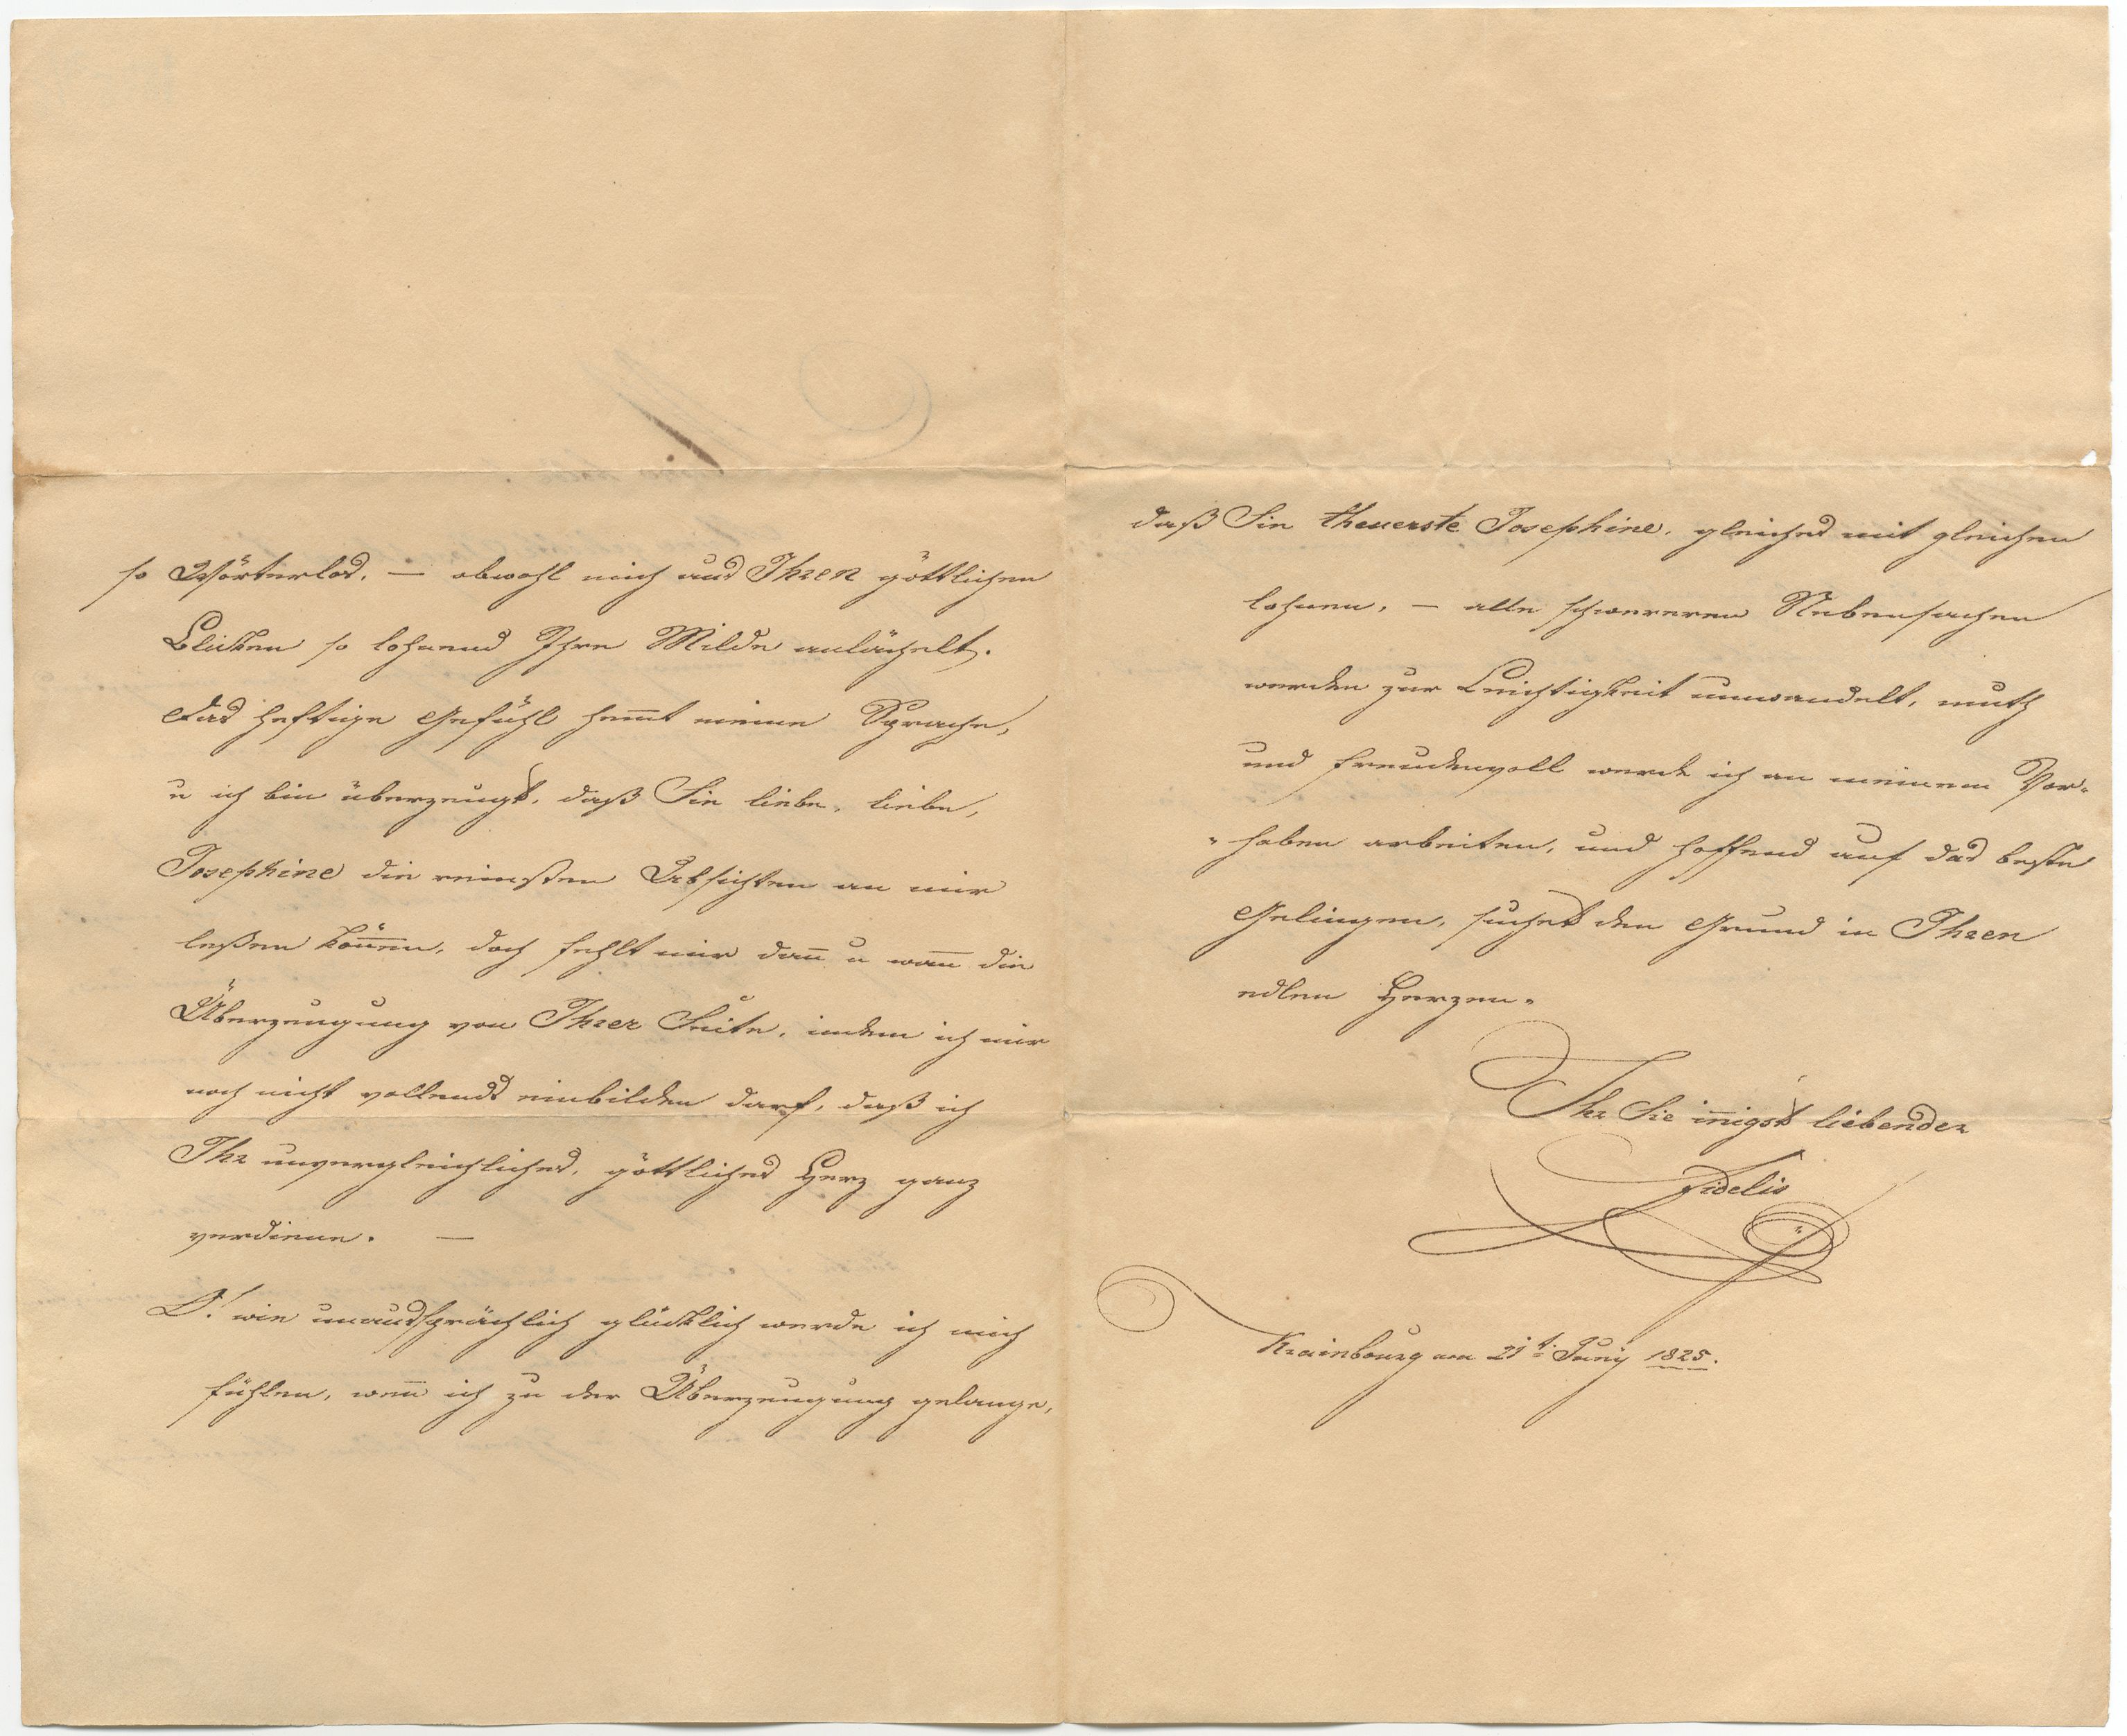 so Wörterlos. — obwohl mich aus Ihren göttlichen
Blicken so lohnend Ihre Milde anlächelt.
Das heftige Gefühl hem̅t meine Sprache,
u ich bin überzeugt, daß Sie liebe, liebe,
Josephine die reinsten Absichten an mir
leßen kön̅en, doch fehlt mir dan̅ u wan̅ die
Überzeugung von Ihrer Seite, indem ich mir
noch nicht vollends einbilden darf, daß ich
Ihr unvergleichliches, göttliches Herz ganz
verdiene. —
O! wie unaussprächlich glücklich werde ich mich
fühlen, wen̅ ich zu der Überzeugung gelange,
daß Sie theuerste Josephine, gleiches mit gleichen
lohnen, — alle schwereren Nebensachen
werden zur Leichtigkeit umwandelt, muth
und freudenvoll werde ich an meinem Vor-
-haben arbeiten, und hoffend auf das beste
Gelingen, suchet den Grund in Ihren
edlen Herzen.
Ihr Sie in̅igst liebender
Fidelis
Krainbourg am 21t Juny 1825.